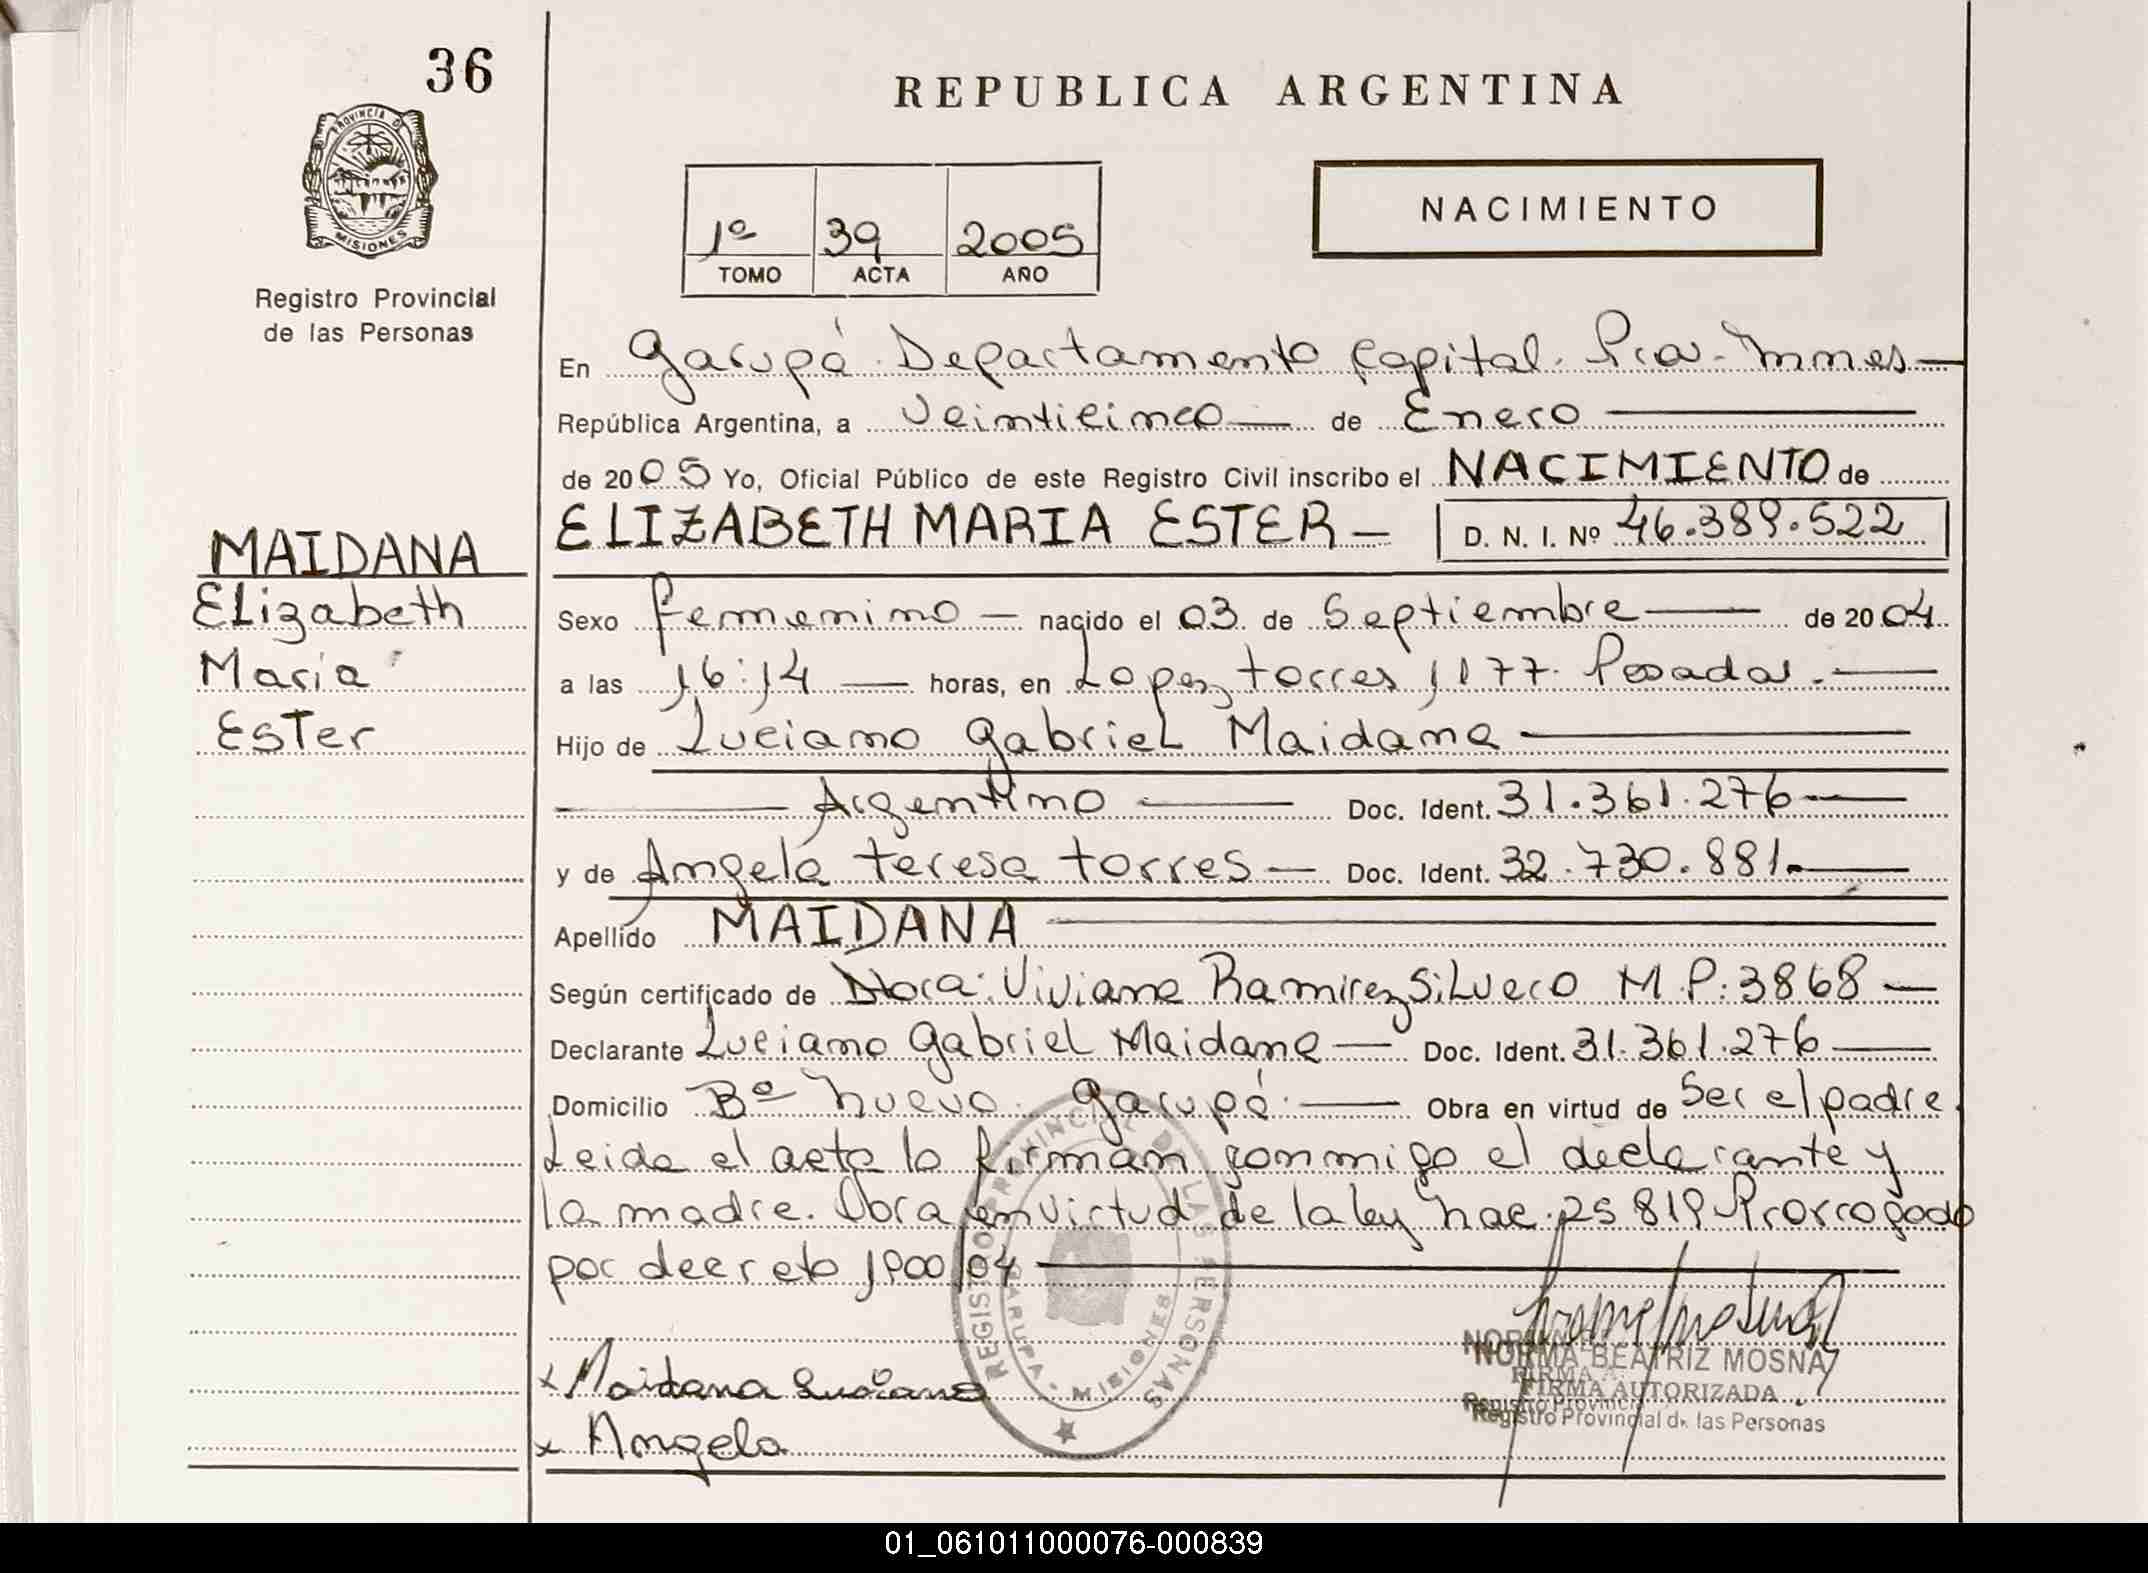 36
REPUBLICA ARGENTINA
PROVINCIA DE
MISIONES
Registro Provincial
de las Personas
1º 39 2005
TOMO ACTA AÑO
NACIMIENTO
En Garupá Departamento Capital. Prov. Mnes
República Argentina, a Veinticinco de Enero
de 2005 Yo, Oficial Público de este Registro Civil inscribo el NACIMIENTO de
ELIZABETH MARIA ESTER D. N. I. Nº 46.389.522
MAIDANA
Elizabeth
Maria
Ester
Sexo femenino nacido el 03 de Septiembre de 2004
a las 16:14 horas, en Lopez torres 1177. Posadas.
Hijo de Luciano Gabriel Maidana
Argentino Doc. Ident. 31.361.276
y de Angela teresa torres Doc. Ident. 32.730.881.
Apellido MAIDANA
Según certificado de Dtora: Viviana Ramirez Silvero M.P. 3868
Declarante Luciano Gabriel Maidana Doc. Ident. 31.361.276
Domicilio Bº nuevo. Garupá Obra en virtud de Ser el padre.
Leida el acta la firman conmigo el declarante y
la madre. Obra en virtud de la ley nac. 25819 Prorrogado
por decreto 1900/04
REGISTRO PROVINCIAL DE LAS PERSONAS
GARUPA - MISIONES
x Maidana Luciano
x Angela
NORMA BEATRIZ MOSNA
FIRMA AUTORIZADA
Registro Provincial de las Personas
01_061011000076-000839